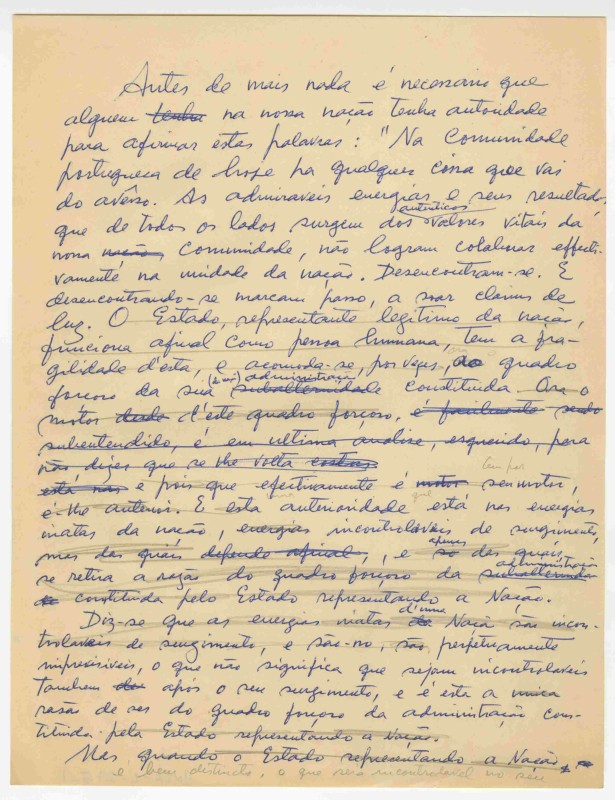 Antes de mais nada é necessario que
alguem tenha na nossa nação tenha autoridade
para afirmar estas palavras: "Na Comunidade
portuguesa de hoje ha qualquer coisa que vai
do avêsso. As admiraveis energias e seus resultados
autênticos
que de todos os lados surgem dos valores vitais da
nossa nação, Comunidade, não logram colaborar effecti-
vamente na unidade da nação. Desencontram-se. E
desencontrando-se marcam passo, a soar clarins de
luz. O Estado, representante legitimo da nação,
funciona afinal como pessoa humana, tem a fra-
gilidade d'esta, e acomoda-se, por vezes, ao quadro
administração
forçoso da sua subalternidade constituida. Ora o
motor dado d'este quadro forçoso, é facilmente sendo
subentendido, e em ultima analise, esquecido, para
não dizer que se lhe volta costas
tem por
está nas e pois que efectivamente é motor seu motor,
é-lhe anterior. E esta anterioridade está nas energias
inatas da nação, energias incontrolaveis de surgimento,
apenas
mas das quais depende afinal, e só das quais
administração
se retira a razão do quadro forçoso da subalternidade
constituida pelo Estado representando a Nação.
d'uma
Diz-se que as energias inatas da Nação são incon-
trolaveis de surgimento, e são-no, são perfeitamente
imprevisiveis, o que não significa que sejam incontrolaveis
tambem após o seu surgimento, e é esta a unica
razão de ser do quadro forçoso da administração cons-
tituida pelo Estado representando a Nação.
Mas quando o Estado representando a Nação
e bem distincto, o que será incontrolavel no seu